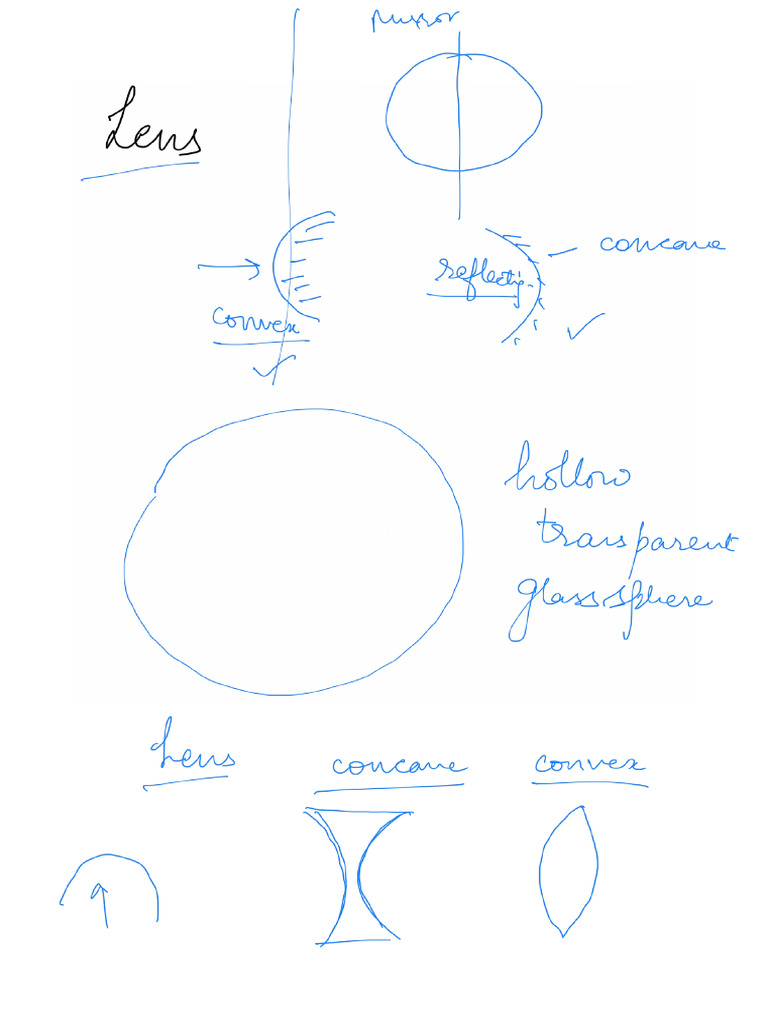 mirror
Lens
concave
reflecting
convex
hollow
transparent
glass sphere
Lens
concave
convex